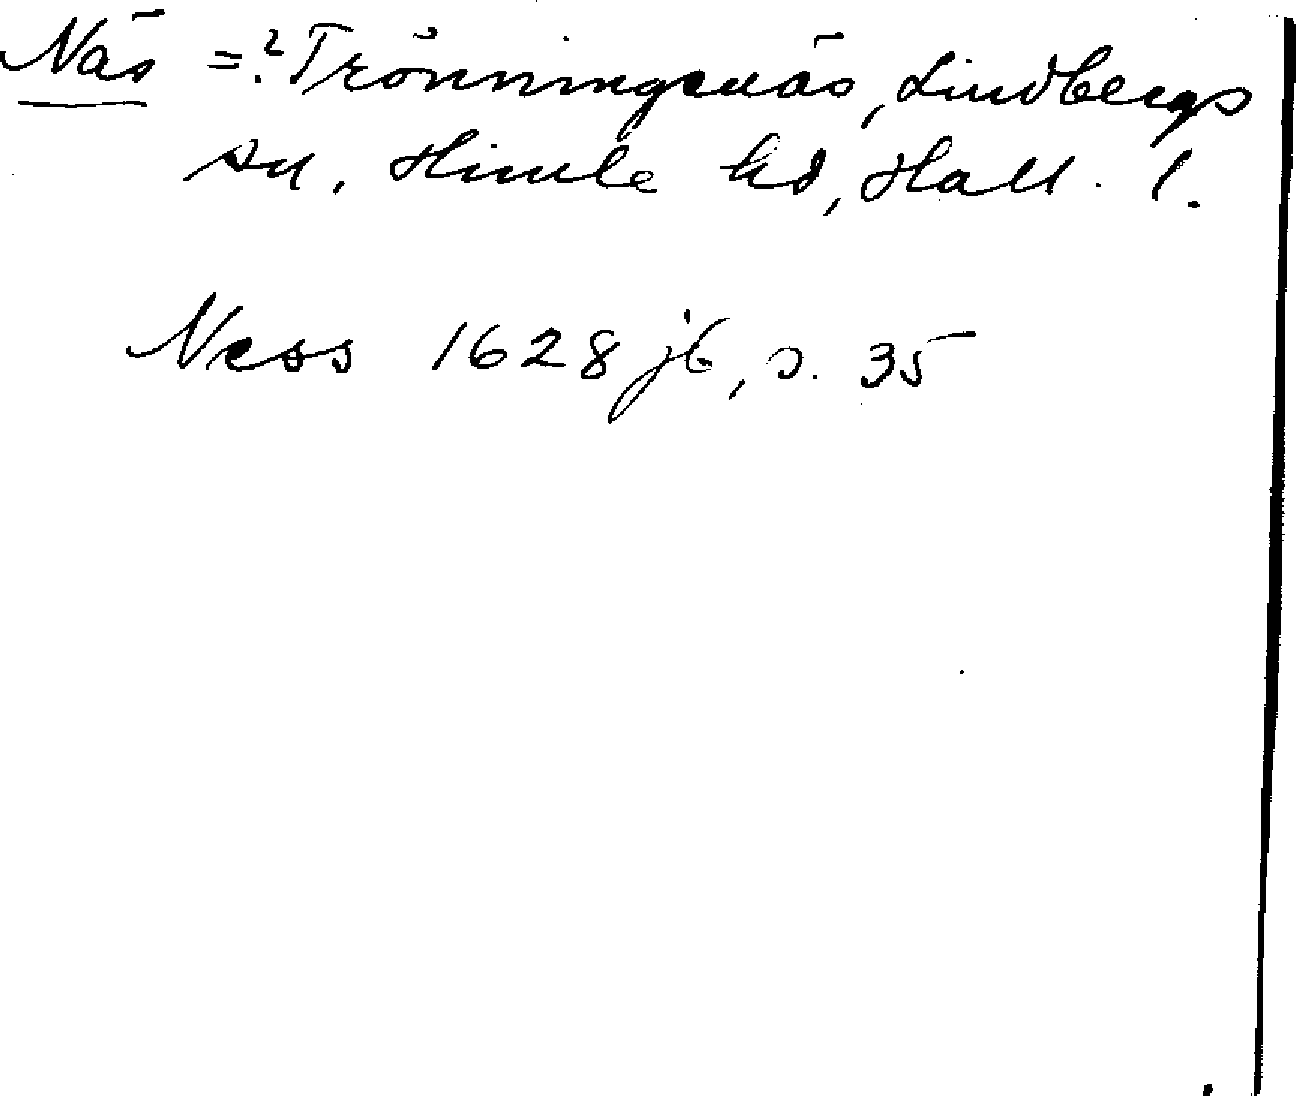 Näs =? Trönningenäs, Lindbergs
sn, Himle hd, Hall. l.
Ness 1628 jb, s. 35